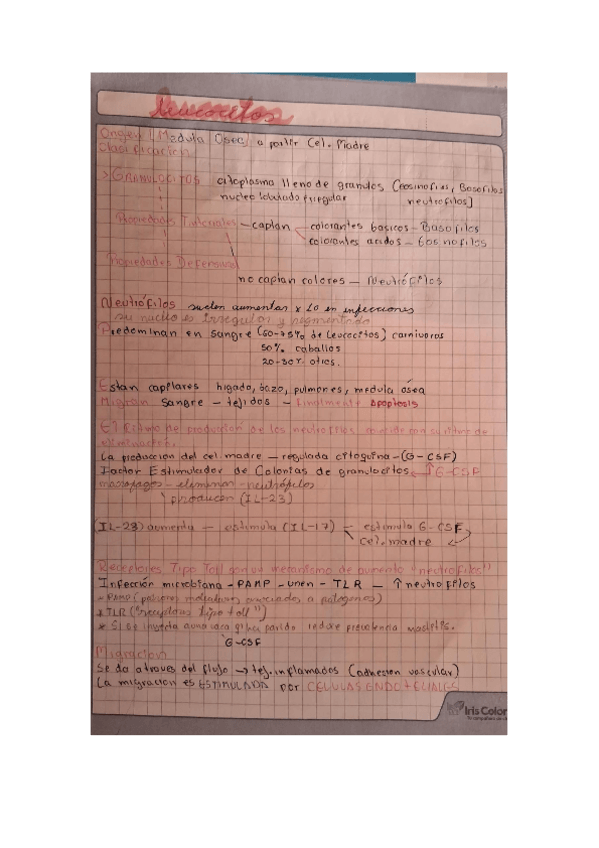 leucocitos
Origen (Medula Osea) a partir Cel. Madre
Clasificación
> GRANULOCITOS citoplasma lleno de granulos (eosinofilos, Basofilos
nucleo lobulado e irregular neutrofilos]
Propiedades Tintoriales - captan colorantes basicos - Basofilos
colorantes acidos - Eosinofilos
Propiedades Defensivas
no captan colores - Neutrófilos
Neutrófilos suelen aumentar x 10 en infecciones
su nucleo es Irregular y segmentado
Predominan en sangre (60-75% de leucocitos) carnivoros
50% caballos
20-30% otros.
Estan capilares higado, bazo, pulmones, medula ósea
Migran sangre - tejidos - finalmente apoptosis
El Ritmo de producción de los neutrofilos coincide con su ritmo de
eliminación.
La produccion del cel madre - regulada citoquina - (G-CSF)
Factor Estimulador de Colonias de granulocitos ↑G-CSF
macrofagos - eliminan - neutrófilos
producen (IL-23)
(IL-23) aumenta - estimula (IL-17) - estimula G-CSF
cel. madre
Receptores Tipo Toll son un mecanismo de aumento "neutrofilos")
Infección microbiana - PAMP - unen - TLR - ↑ neutrofilos
- PAMP (patrones moleculares asociados a patogenos)
* TLR ("receptores tipo toll")
* Si se inyecta a una vaca parido reduce prevalencia mastitis.
G-CSF
Migracion
Se da a traves del flujo → tej. inflamados (adhesion vascular)
La migracion es ESTIMULADA por CELULAS ENDOTELIALES
Iris Color